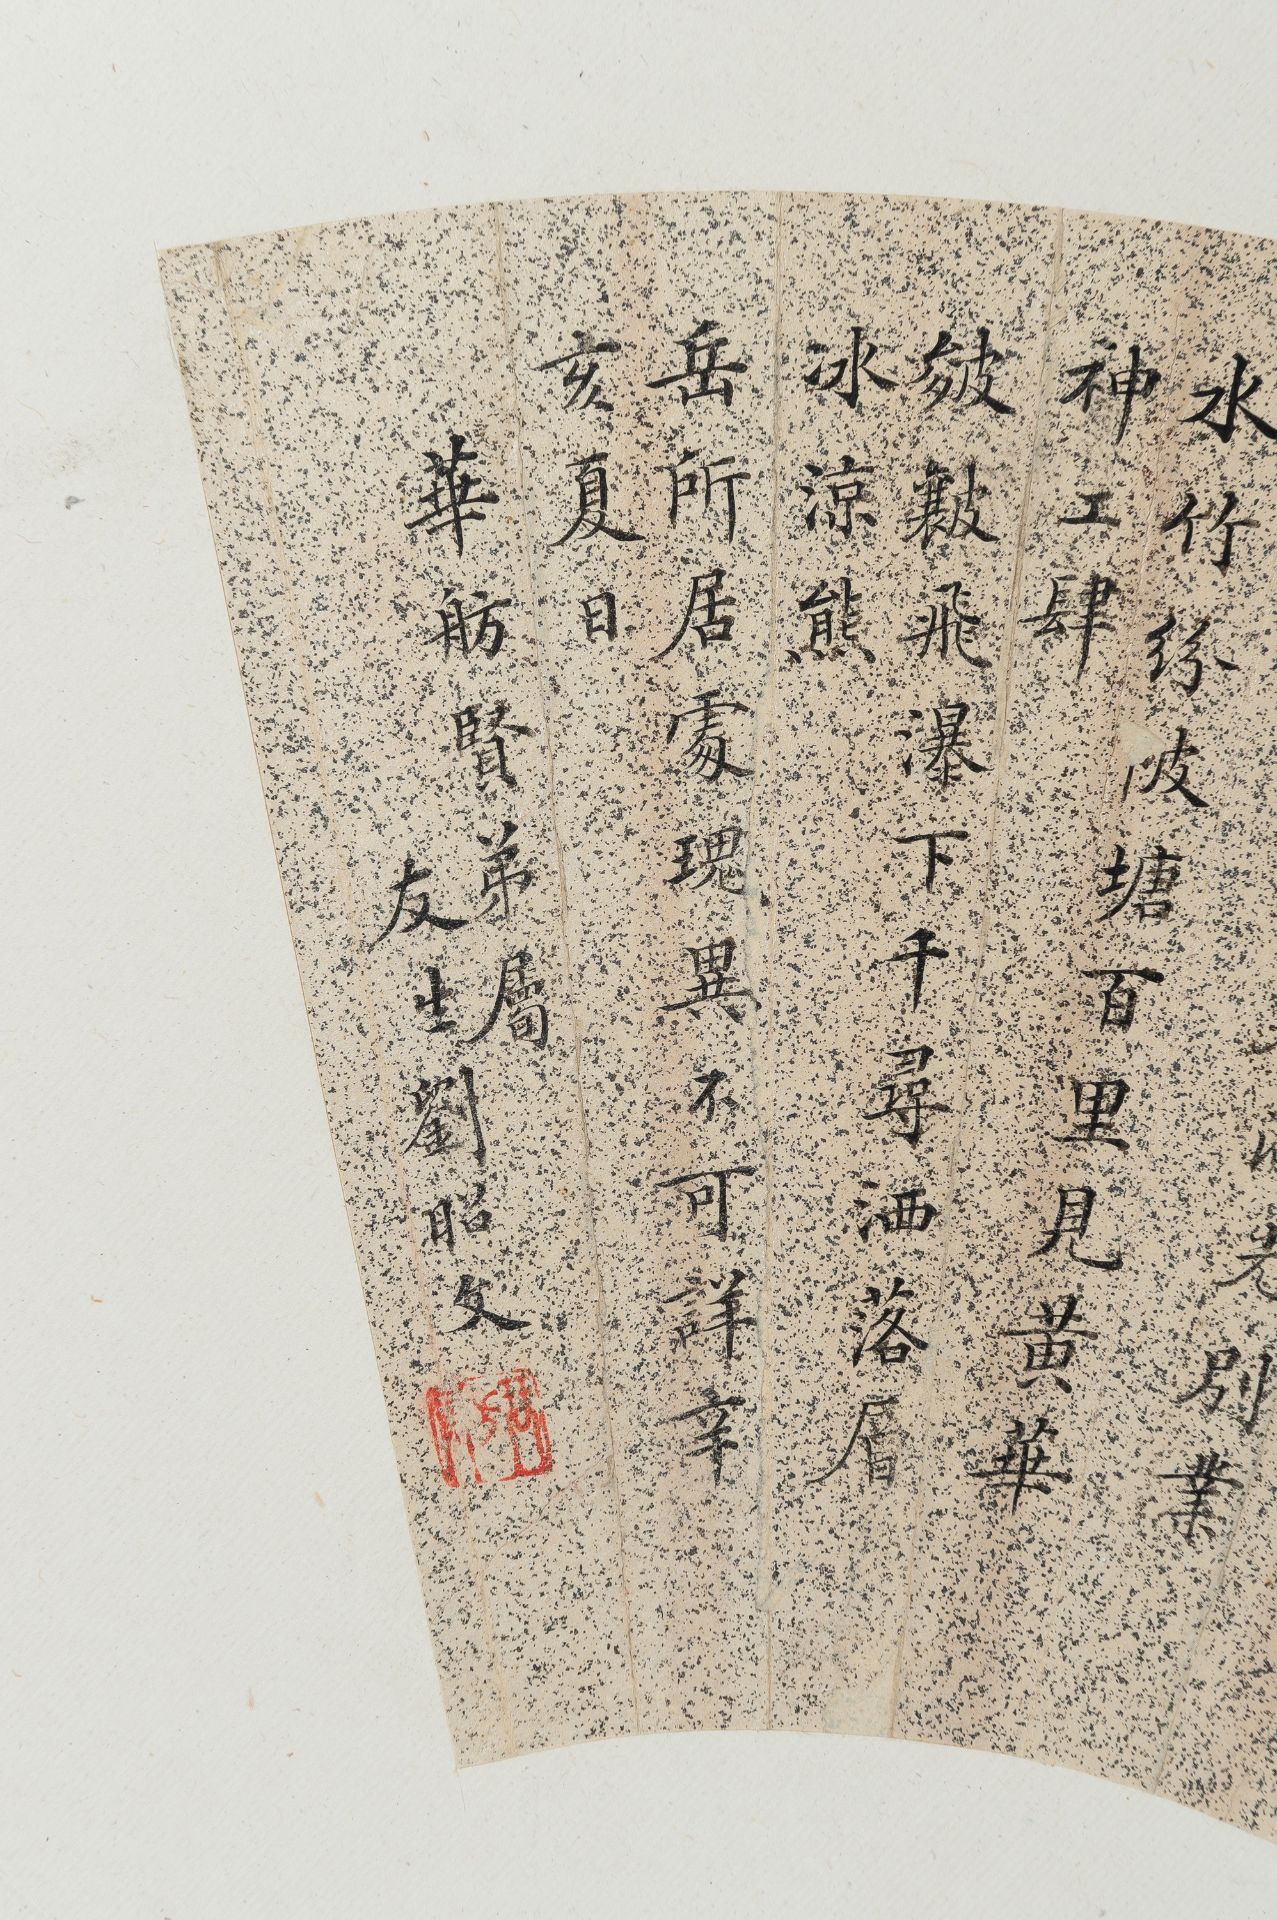 老別業
水竹紛陂塘百里見黃華
神工肆
皴皺飛瀑下千尋洒落層
冰涼熊
岳所居處瑰異不可詳辛
亥夏日
華舫賢弟屬
友生劉昭文